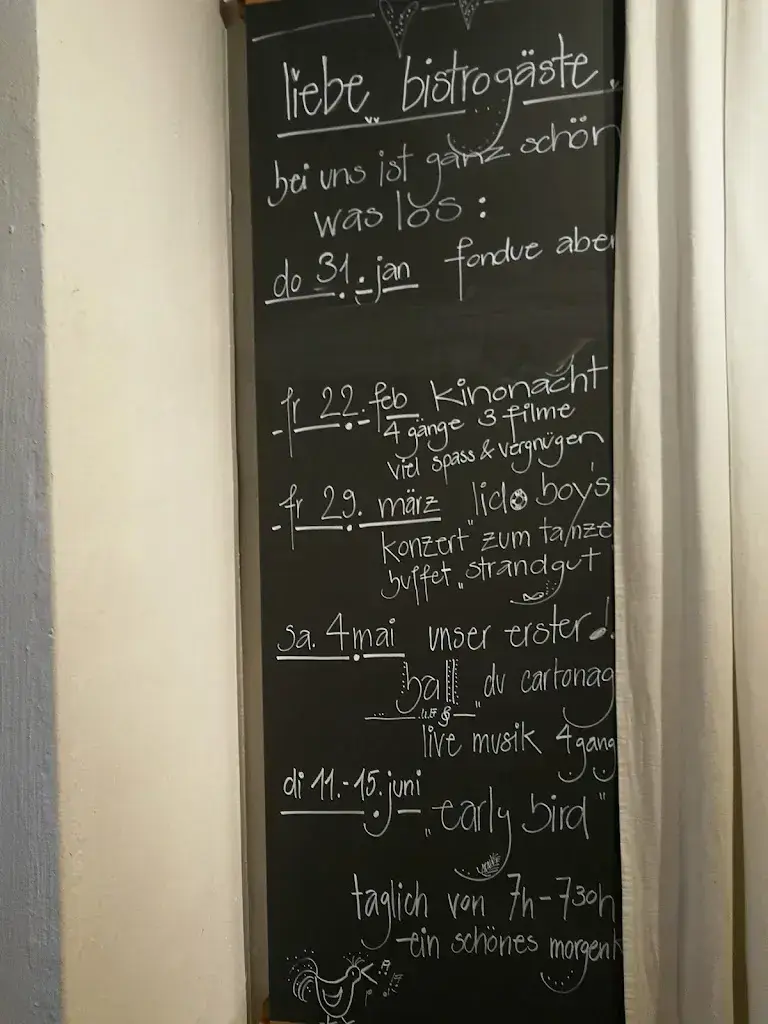 liebe bistrogäste
bei uns ist ganz schön
was los:
do 31. jan fondue aben
fr 22. feb kinonacht
4 gänge 3 filme
viel spass & vergnügen
fr 29. märz lido boy's
konzert" zum tanze
buffet „strandgut
sa. 4 mai unser erster!
ball "du cartonag
live musik 4 gang
di 11.-15. juni
„early bird"
täglich von 7h-730h
ein schönes morgen